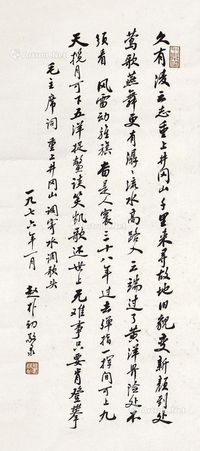 久有凌云志重上井冈山千里来寻故地旧貌变新颜到处
莺歌燕舞更有潺潺流水高路入云端过了黄洋界险处不
须看 风雷动旌旗奋是人寰三十八年过去弹指一挥间可上九
天揽月可下五洋捉鳖谈笑凯歌还世上无难事只要肯登攀
毛主席词 重上井冈山 调寄水调歌头
一九七六年一月 赵朴初敬录